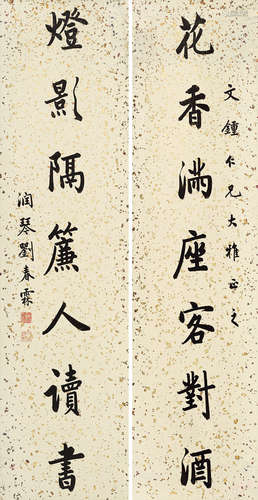 文鍾仁兄大雅正之
花香滿座客對酒
燈影隔簾人讀書
润琴劉春霖